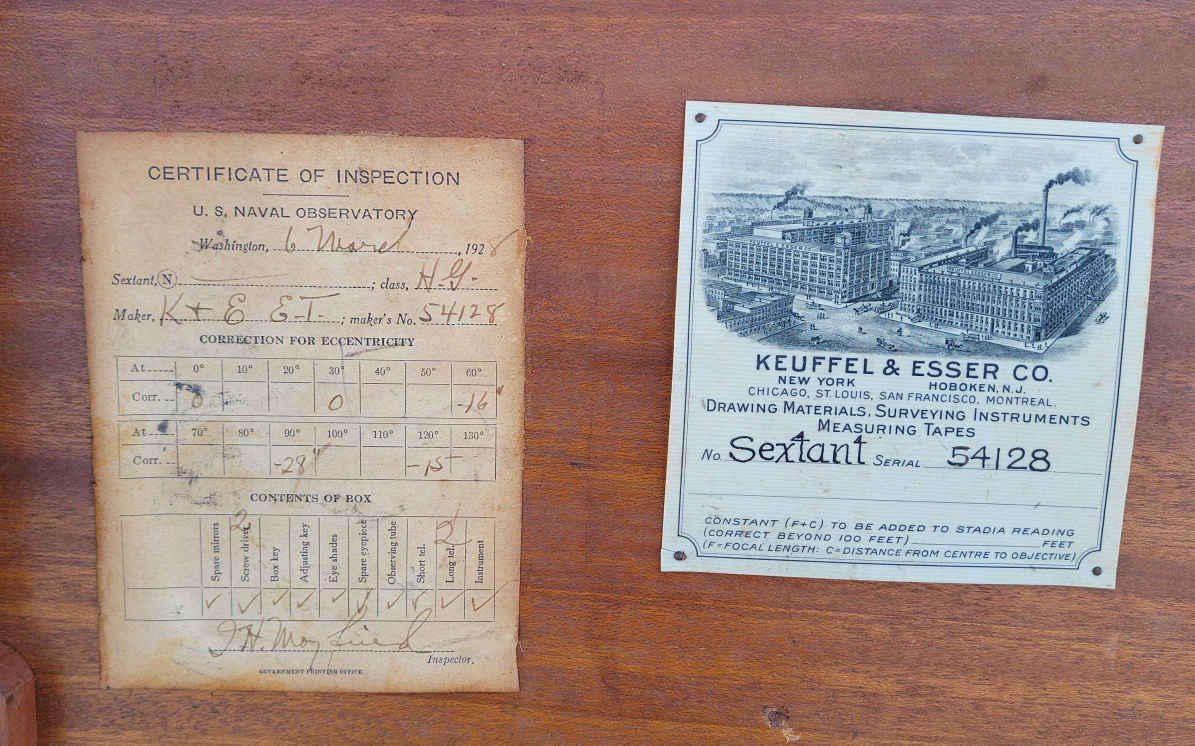 CERTIFICATE OF INSPECTION
U. S. NAVAL OBSERVATORY
Washington, 6 March, 1928
Sextant, N ; class, H.G.
Maker, K + E E.T. ; maker's No. 54128
CORRECTION FOR ECCENTRICITY
At 0° 10° 20° 30° 40° 50° 60°
Corr. 0 0 -16"
At 70° 80° 90° 100° 110° 120° 130°
Corr. -28" -15
CONTENTS OF BOX
2 2
Spare mirrors Screw driver Box key Adjusting key Eye shades Spare eyepiece Observing tube Short tel. Long tel. Instrument
✓ ✓ ✓ ✓ ✓ ✓ ✓ ✓ ✓ ✓
Inspector.
GOVERNMENT PRINTING OFFICE
KEUFFEL & ESSER CO.
NEW YORK HOBOKEN, N.J.
CHICAGO, ST. LOUIS, SAN FRANCISCO, MONTREAL.
DRAWING MATERIALS, SURVEYING INSTRUMENTS
MEASURING TAPES
No. Sextant SERIAL 54128
CONSTANT (F+C) TO BE ADDED TO STADIA READING
(CORRECT BEYOND 100 FEET) FEET
(F=FOCAL LENGTH: C=DISTANCE FROM CENTRE TO OBJECTIVE)